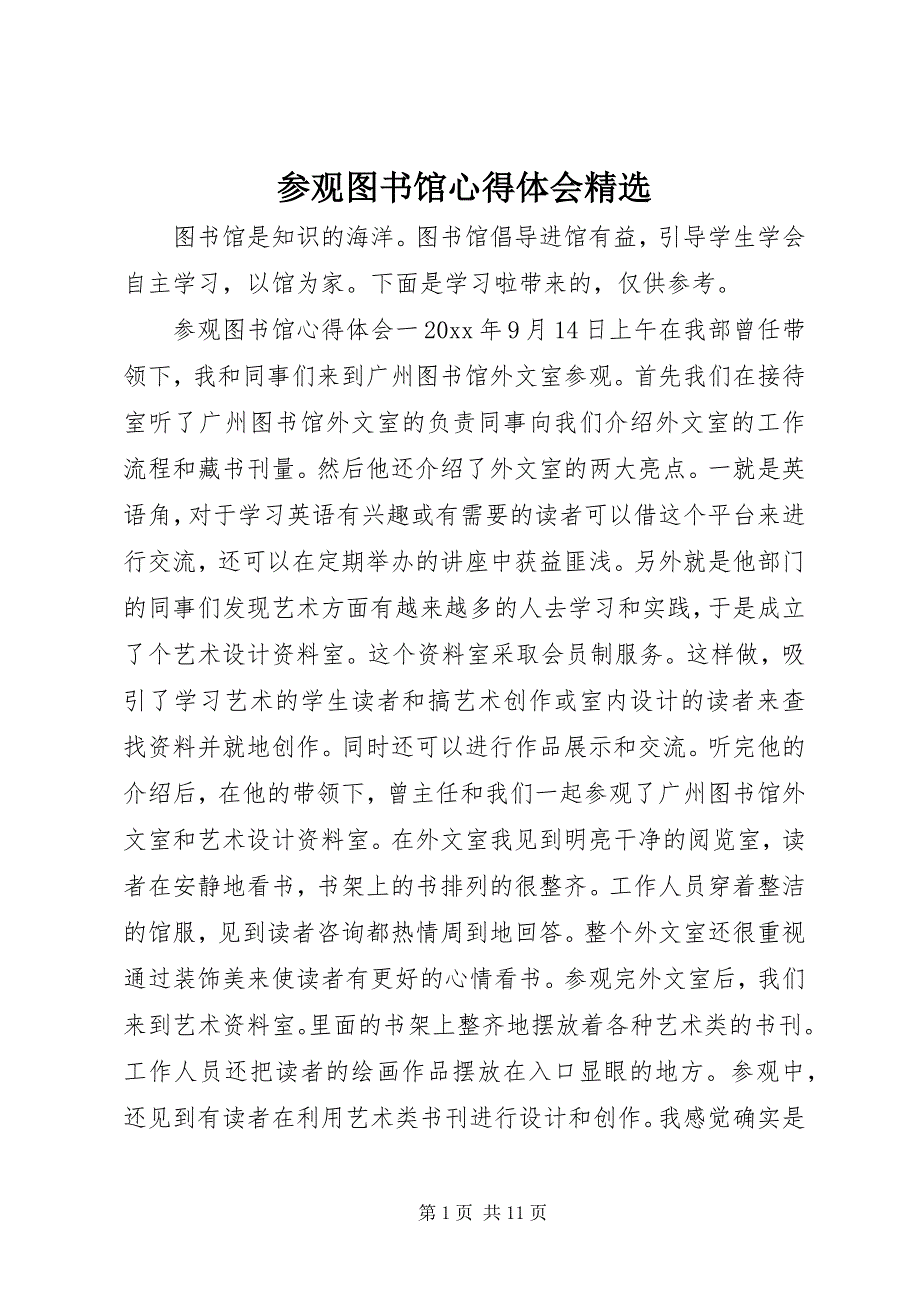 参观图书馆心得体会精选
图书馆是知识的海洋。图书馆倡导进馆有益，引导学生学会
自主学习，以馆为家。下面是学习啦带来的，仅供参考。
参观图书馆心得体会一 20xx 年 9 月 14 日上午在我部曾任带
领下，我和同事们来到广州图书馆外文室参观。首先我们在接待
室听了广州图书馆外文室的负责同事向我们介绍外文室的工作
流程和藏书刊量。然后他还介绍了外文室的两大亮点。一就是英
语角，对于学习英语有兴趣或有需要的读者可以借这个平台来进
行交流，还可以在定期举办的讲座中获益匪浅。另外就是他部门
的同事们发现艺术方面有越来越多的人去学习和实践，于是成立
了个艺术设计资料室。这个资料室采取会员制服务。这样做，吸
引了学习艺术的学生读者和搞艺术创作或室内设计的读者来查
找资料并就地创作。同时还可以进行作品展示和交流。听完他的
介绍后，在他的带领下，曾主任和我们一起参观了广州图书馆外
文室和艺术设计资料室。在外文室我见到明亮干净的阅览室，读
者在安静地看书，书架上的书排列的很整齐。工作人员穿着整洁
的馆服，见到读者咨询都热情周到地回答。整个外文室还很重视
通过装饰美来使读者有更好的心情看书。参观完外文室后，我们
来到艺术资料室。里面的书架上整齐地摆放着各种艺术类的书刊。
工作人员还把读者的绘画作品摆放在入口显眼的地方。参观中，
还见到有读者在利用艺术类书刊进行设计和创作。我感觉确实是
第 1 页 共 11 页